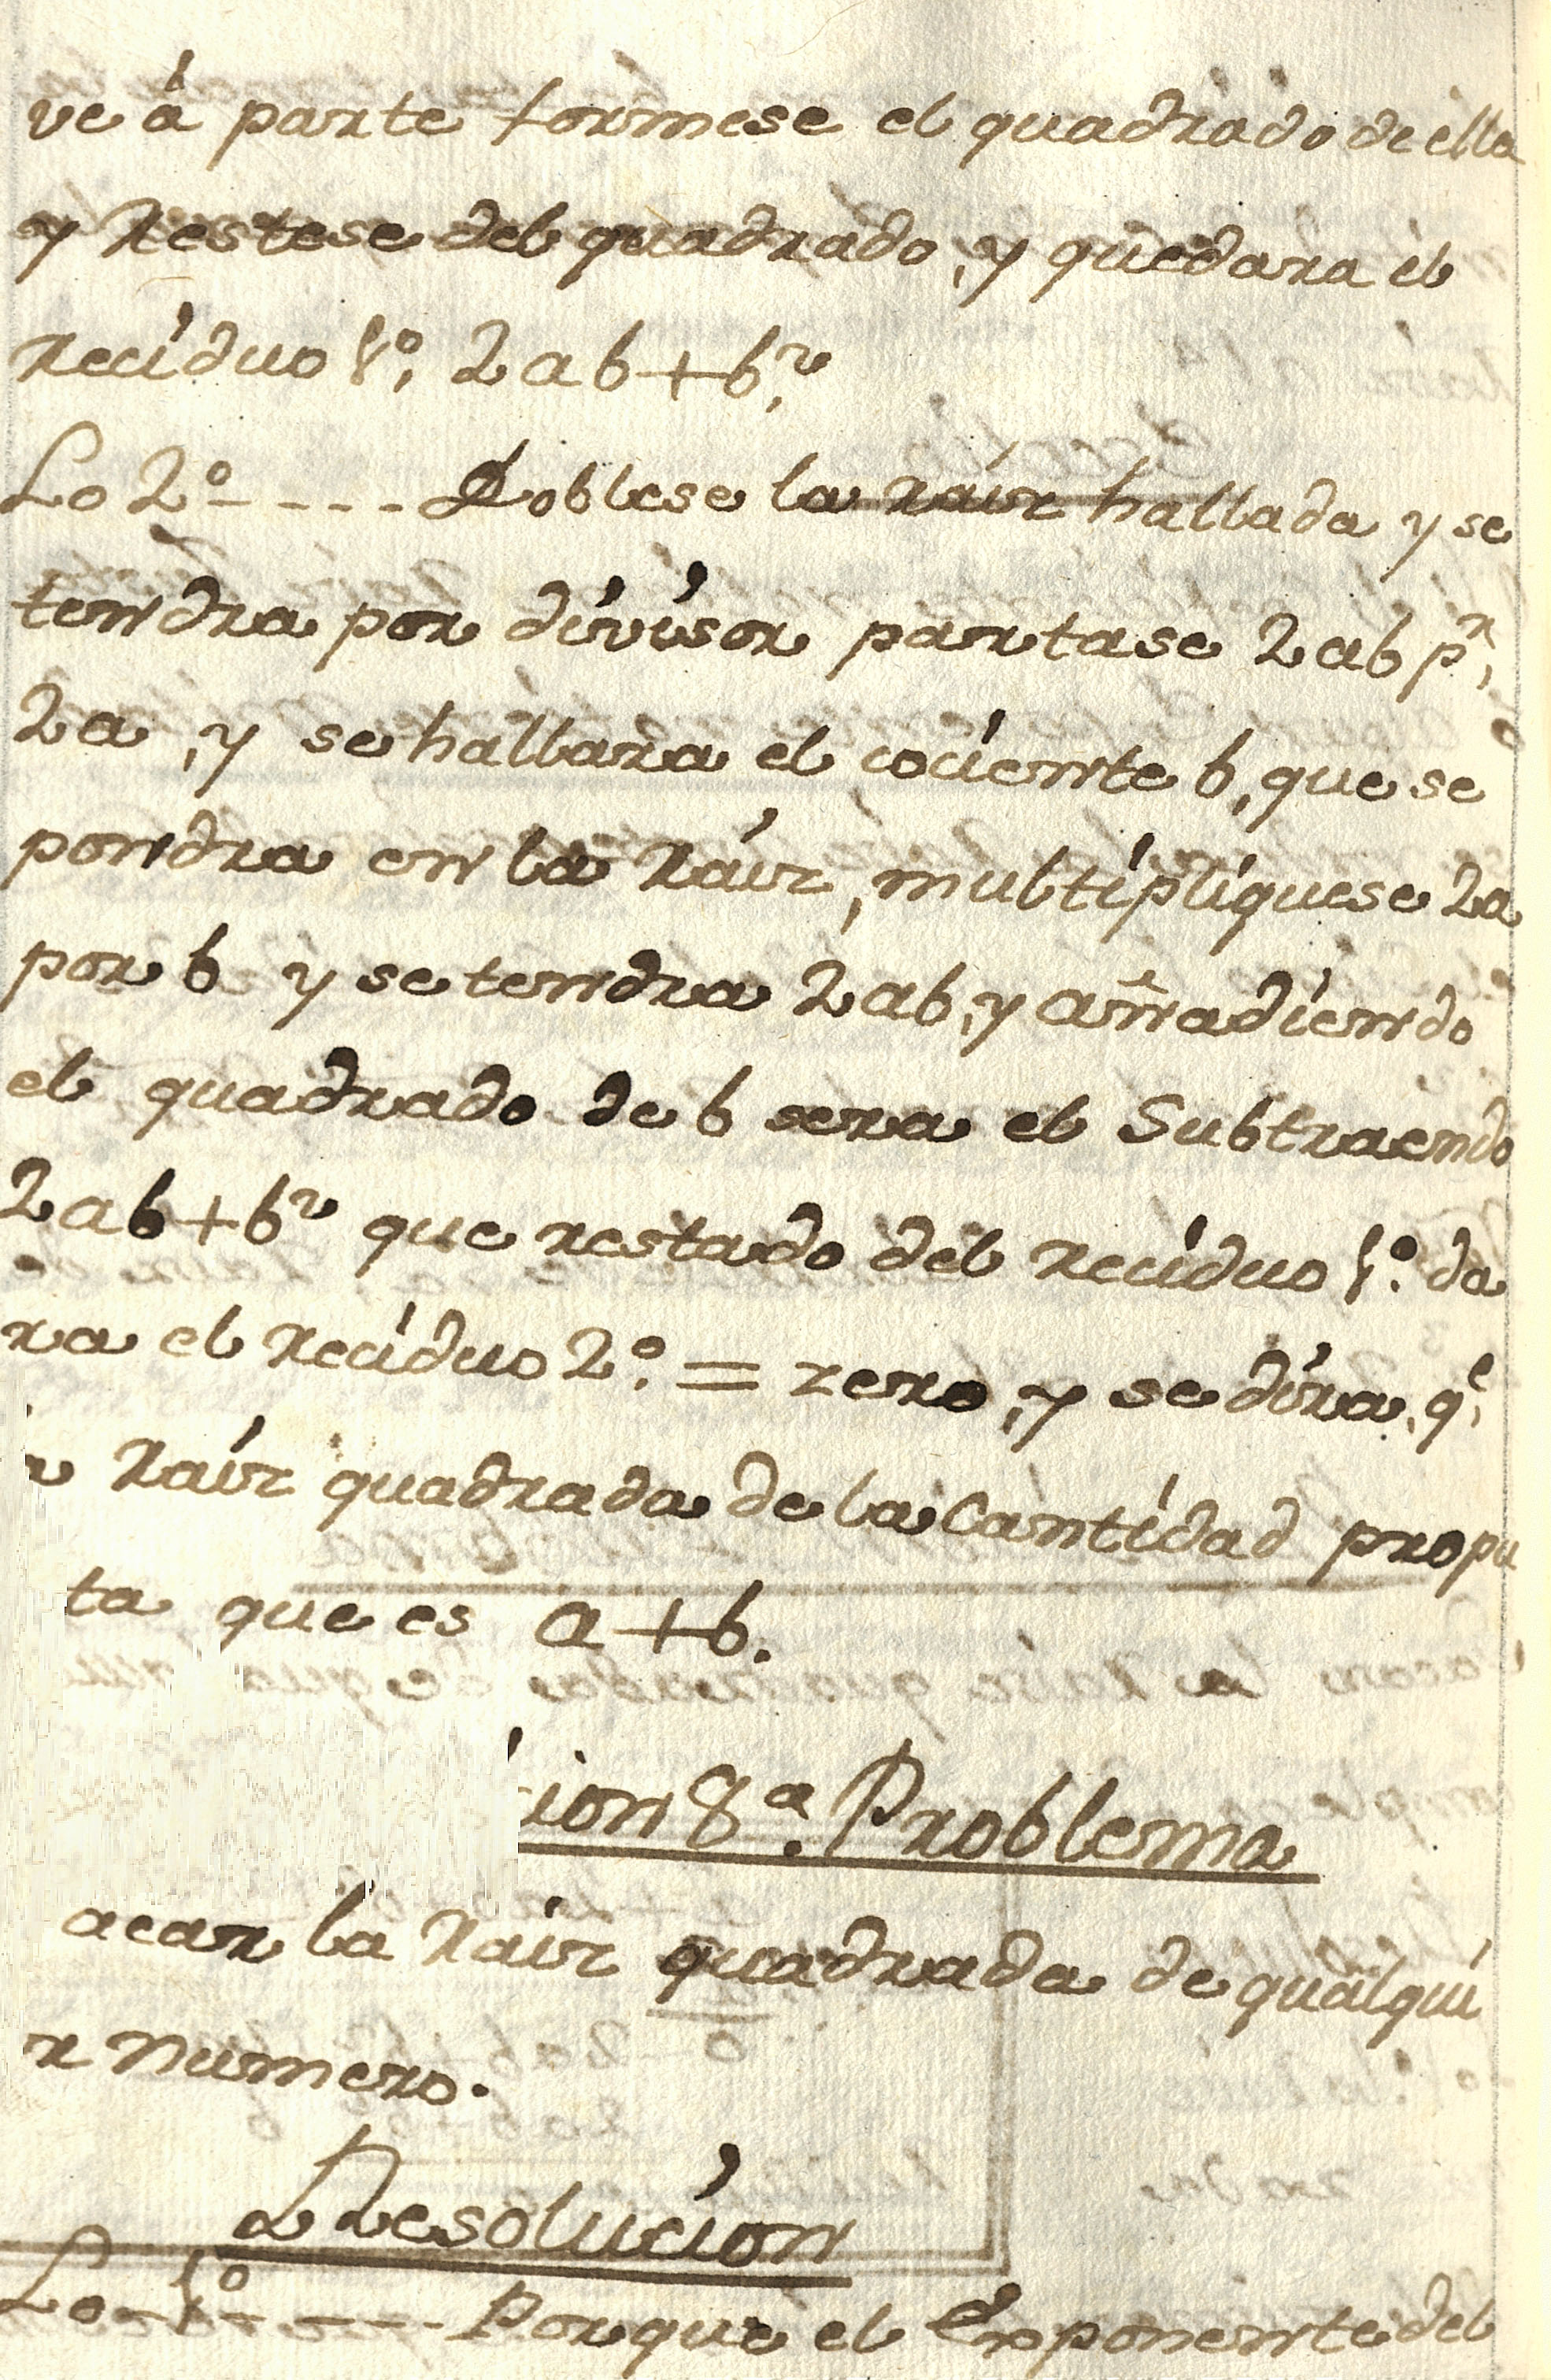 ve á parte formese el quadrado de ella
y Restese del quadrado, y quedara el
Reciduo 1º, 2ab+b²,
Lo 2º - - - - Doblese la raiz hallada y se
tendra por divisor partase 2ab pr,
2a, y se hallara el cociente b, que se
pondra en la Raiz, multipliquese 2a
por b y se tendra 2ab, y añadiendo
el quadrado de b sera el Subtraendo
2ab+b² que restado del reciduo 1º. da
ra el Reciduo 2º. = zero, y se dira, qe,
a Raiz quadrada de la Cantidad propu
ta que es a+b.
cion 8ª. Problema
acar la Raiz quadrada de qualqui
r Numero.
Resolucion
Lo - 1º - - - - Porque el Exponente del